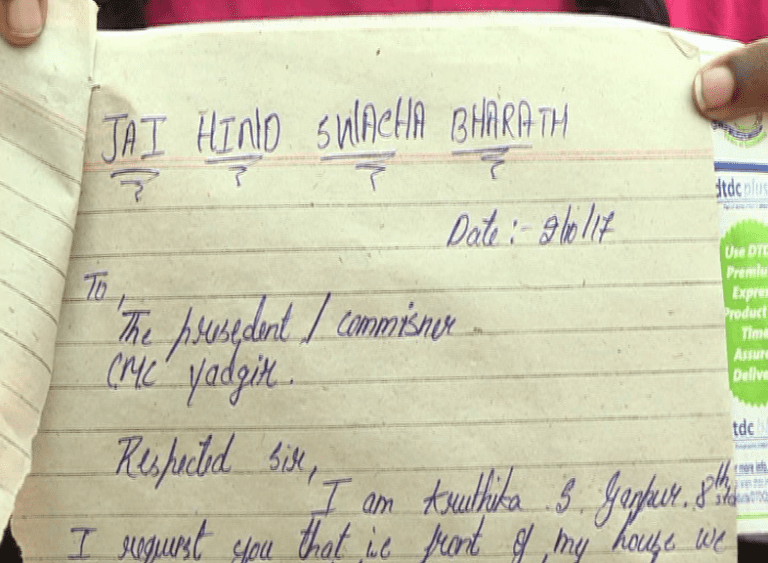 JAI HIND SWACHA BHARATH
Date :- 2/10/17
To,
The presedent / commisner
CMC Yadgir.
Respected Sir,
I am Kruthika S. Ganpur. 8th std
I request you that i.e front of my house we
dtdc plus
Use DTD
Premiu
Expres
Product
Time
Assure
Delive
tdc